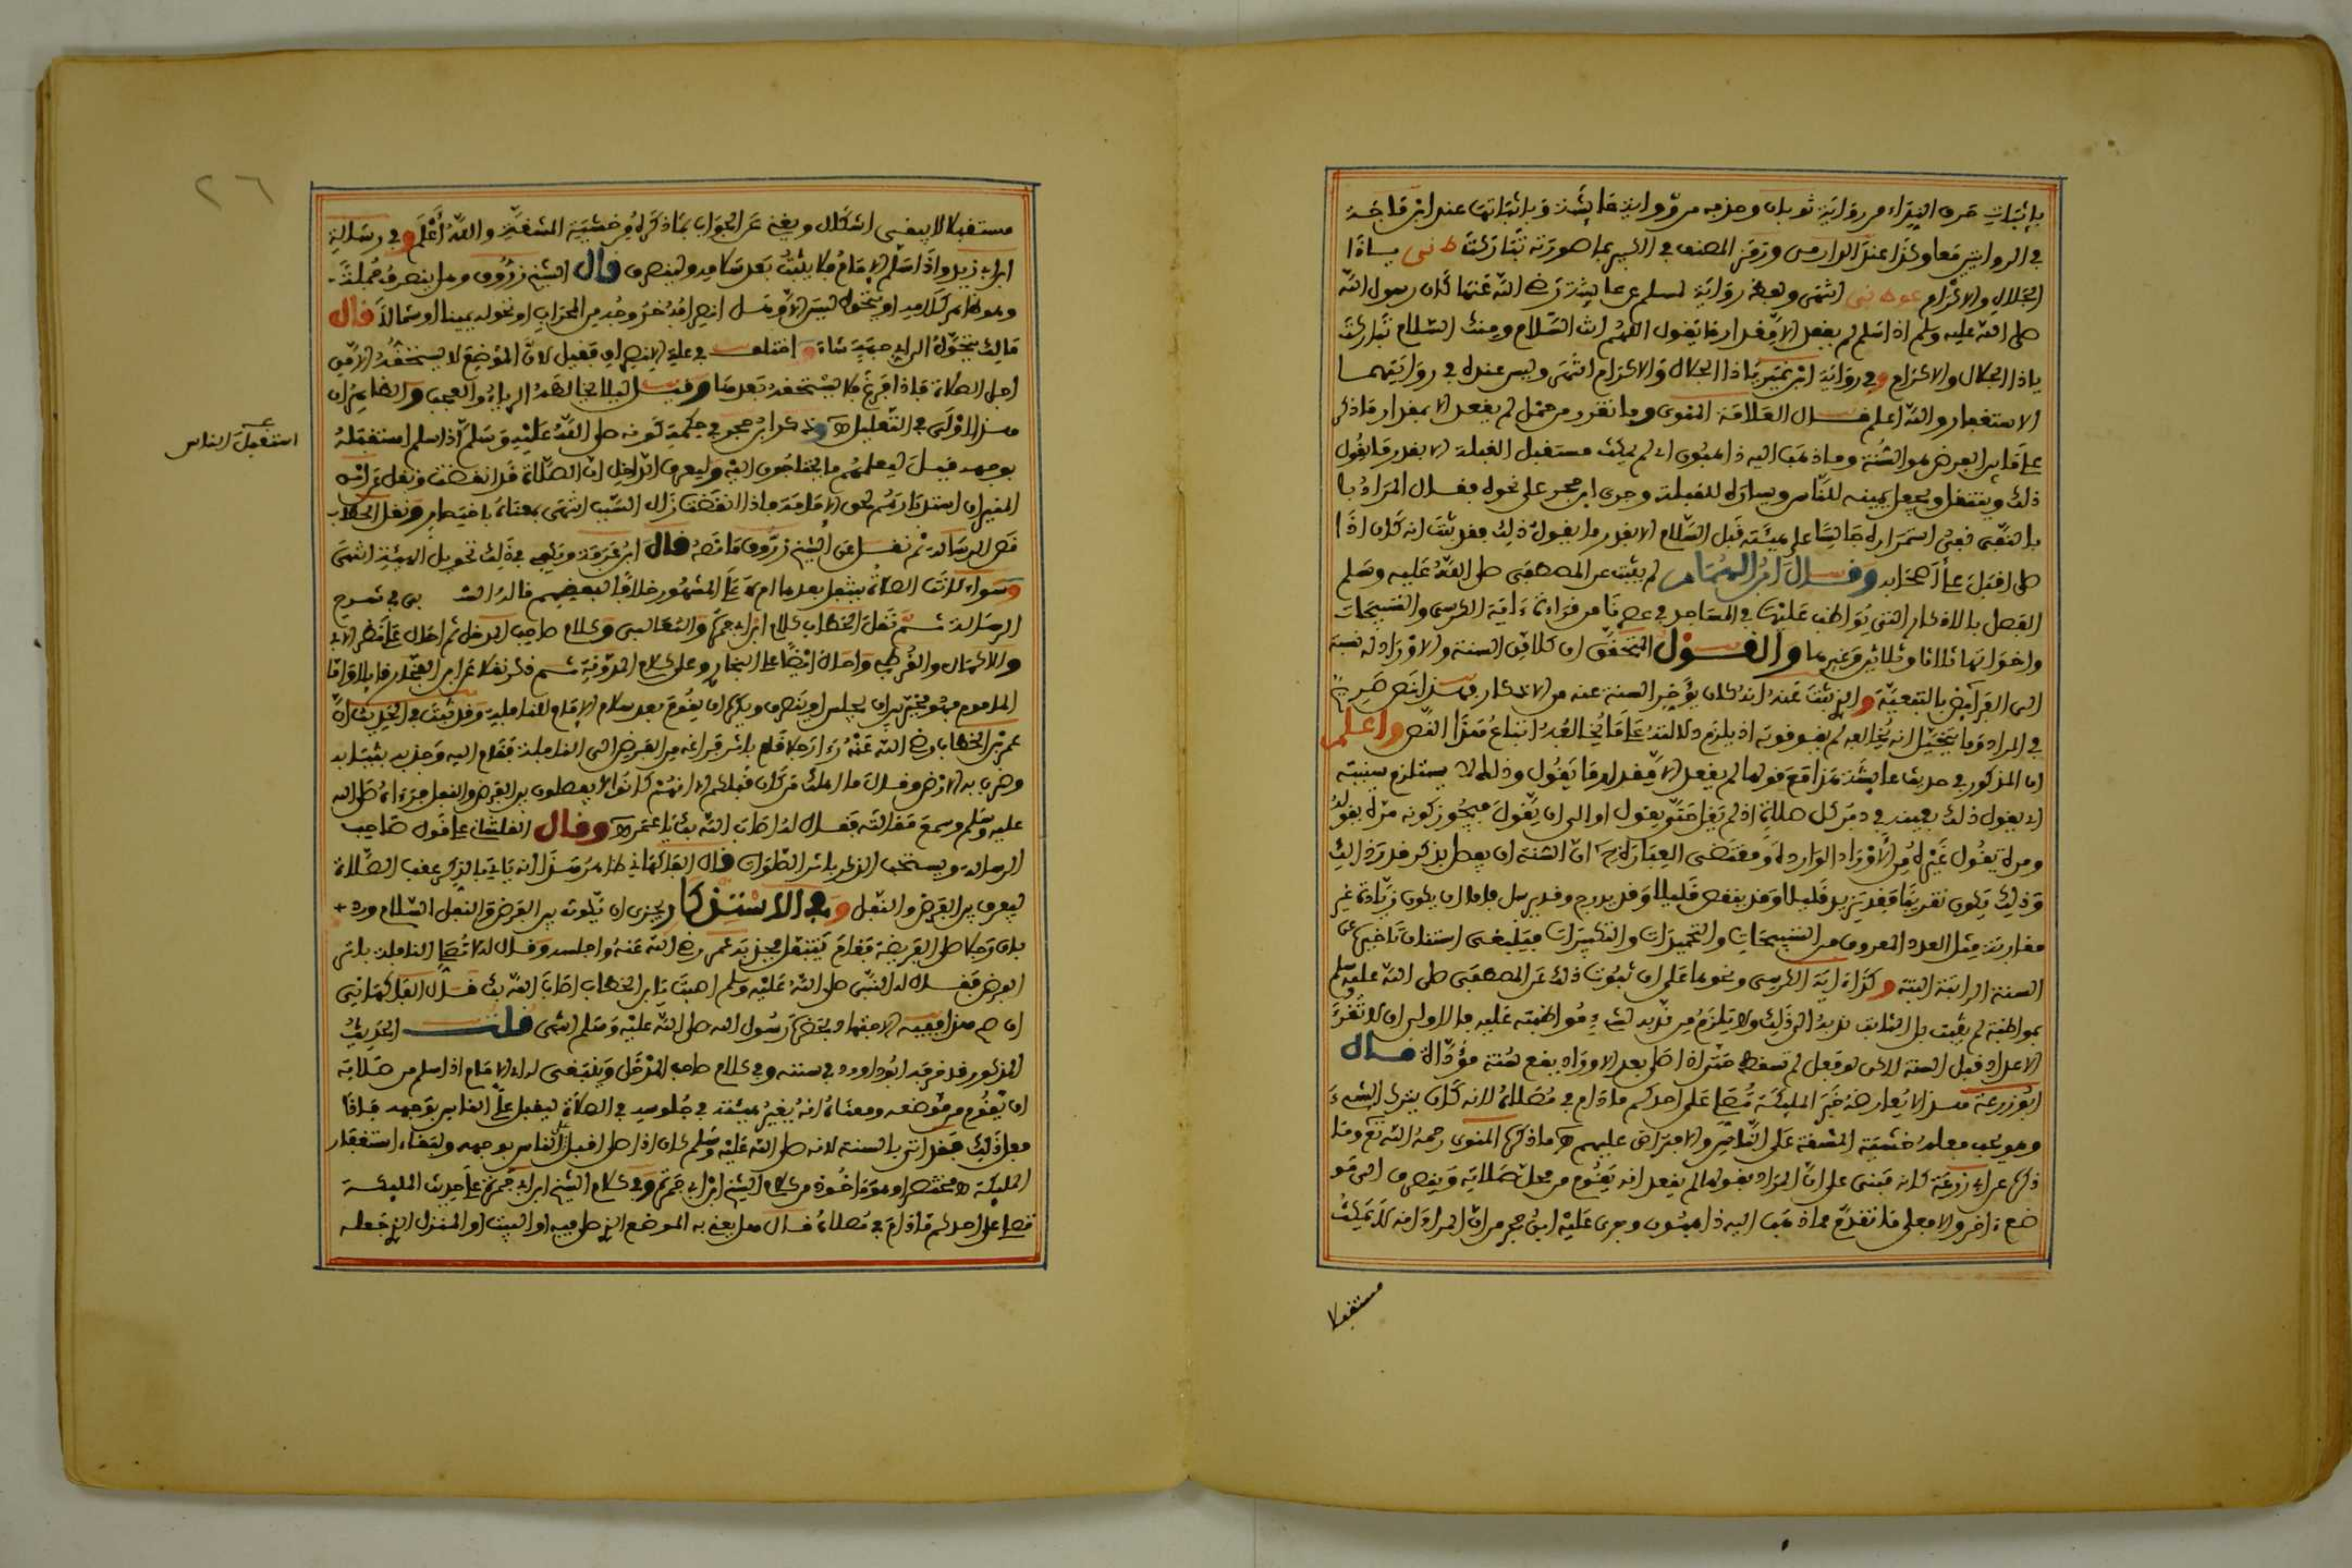 بإثبات حرف النداء من رواية ثوبان وحذفه من رواية عائشة وبإثباتها عند ابن ماجه
في الروايتين معا وكذا عند الدارمي ورمز المصنف في الكبير بما صورته تباركت ط ني ياذا
الجلال والإكرام عو طب ني انتهى ولفظ رواية لمسلم عن عائشة رضي الله عنها كان رسول الله
صلى الله عليه وسلم اذا سلم لم يقعد الا مقدار ما يقول اللهم انت السلام ومنك السلام تباركت
ياذا الجلال والاكرام وفي رواية ابن نمير ياذا الجلال والاكرام انتهى وليس عنده في روايتهما
الاستغفار والله اعلم قال العلامة المنوي وما تقرر من حمل لم يقعد الا بمقدار ما ذكر
على ما بين الفرض هو السنة وما ذهب اليه ذاهبون اي لم يمكث مستقبل القبلة الا بقدر ما يقول
ذلك وينتقل ويجعل يمينه للناس ويساره للقبلة وجرى ابن حجر على نحوه فقال المراد با
بالنفي نفي استمراره جالسا على هيئته قبل السلام الا بقدر ما يقول ذلك فقد ثبت انه كان اذا
صلى اقبل على أصحابه وقال ابن الهمام لم يثبت عن المصطفى صلى الله عليه وسلم
الفصل بالاذكار التي يواظب عليها في المساجد في عصرنا من قراءة ءاية الكرسي والتسبيحات
واخواتها ثلاثا وثلاثين وغيرها والقول المتحقق ان كلا من السنة والاوراد له نسبة
الى الفرائض بالتبعية والذي ثبت عنه انه كان يؤخر السنة عنه من الاذكار هذا نص صريح
في المراد وما يتخيل انه يخالفه لم يقو قوته اذ يلزم دلالته على ما يخالفه اتباع هذا النص واعلم
ان المذكور في حديث عائشة هذا مع قولها لم يقعد الا مقدار ما يقول وذلك لا يستلزم سنيته
ان يقول ذلك بعينه في دبر كل صلاة اذ لم يقل حتى يقول او الى ان يقول فيجوز كونه مرة يقوله
ومرة يقول غيره من الاوراد الواردة ومقتضى العبارة ان السنة ان يفصل بذكر قدر ذلك
وذلك يكون تقريبا فقد يزيد قليلا وقد ينقص قليلا وقد يدرج وقد يرسل فاما ان يكون زيادة غير
مقاربة مثل العدد المعروف من التسبيحات والتحميدات والتكبيرات فينبغي استنان تاخيره عن
السنة الراتبة البتة وكذا ءاية الكرسي ونحوها على ان ثبوت ذلك عن المصطفى صلى الله عليه وسلم
بمواظبة لم يثبت بل الثابت ندبه الى ذلك ولا يلزم من ندبه لشيء مواظبته عليه فالاولى ان لا تقرأ
الاعداد قبل السنة لكن لو فعل لم تسقط حتى اذا صلى بعد الاوراد يقع سنة مؤداة قال
ابو زرعة هذا لا يعارضه خبر الملائكة تصلي على احدكم ما دام في مصلاه لانه كان يترك الشيء
وهو يحب فعله خشية المشقة على الناس والافتراض عليهم اه ما ذكره المنوي رحمه الله تع وما
ذكره عن ابي زرعة كانه مبني على ان المراد بقولها لم يقعد انه يقوم من محل صلاته وينصرف الى مو
ضع ءاخر والا فعلى ما تقدم مما ذهب اليه ذاهبون وجرى عليه ابن حجر من ان المراد انه لا يمكث
مستقبلا
٢٦
مستقبلا لا يبقى اشكال ويغني عن الجواب بما ذكره من خشية المشقة والله أعلم وفي رسالة
ابن ابي زيد واذا سلم الامام فلا يثبت بعد سلامه ولينصرف قال الشيخ زروق وهل ينصرف جملة
وهو ظاهر كلامه او يتحول ليس الا وهل انصرافه خروجه من المحراب او تحوله يمينا او شمالا قال
مالك يتحول الى اي جهة شاء واختلف في علة الانصراف فقيل لان الموضع لا يستحقه الا من
اجل الصلاة فاذا فرغ فلا يستحقه بعدها وقيل ليلا يخالطه الرياء والعجب والظاهر ان
هذا اولى في التعليل اه وذكر ابن حجر في حكمة كونه صلى الله عليه وسلم اذا سلم استقبله
استقبل الناس
بوجهه قيل ليعلمهم ما يحتاجون اليه وليعرف الداخل ان الصلاة قد انقضت ونقل عن ابن
المنير ان استدبارهم لحق الامامة فاذا انقضت زال السبب انتهى بمعناه باختصار ونقل الحطاب
نص الرسالة ثم نقل عن الشيخ زروق ما نصه قال ابن عرفة ويكفي في ذلك تحويل الهيئة انتهى
وسواء كانت الصلاة يتنفل بعدها ام لا على المشهور خلافا لبعضهم قاله في شرح
الرسالة ثم نقل الحطاب كلام ابن ابي جمرة والثعالبي وكلام صاحب المدخل ثم احال على نص الابي
والاكمال والقرطبي واحال ايضا على البخاري وعلى كلام المدونة ثم ذكر نقلا عن ابن الفخار ما بال واما
الماموم فهو مخير بين ان يجلس او ينصرف ويكره ان يقوم بعد سلام الامام للنافلة وقد ثبت في الحديث ان
عمر بن الخطاب رضي الله عنه رءا رجلا قام باثر فراغه من الفرض الى النافلة فقام اليه وجذبه بثيابه
وضرب به الارض وقال ما اهلك من كان قبلكم الا انهم كانوا لا يفصلون بين الفرض والنفل فرءاه صلى الله
عليه وسلم وسمع مقالته فقال له اصاب الله بك يا عمر اه وقال القلشاني على قول صاحب
الرسالة ويستحب الذكر باثر الصلوات قال الفاكهاني ظاهر هذا انه ياتي بالذكر عقب الصلاة
ليفرق بين الفرض والنفل وفي الاستذكار يجزي ان يكون بين الفرض والنفل السلام ورد
بان رجلا صلى الفريضة فقام يتنفل فجذبه عمر رضي الله عنه واجلسه وقال له لا تصل النافلة باثر
الفرض فقال له النبي صلى الله عليه وسلم اصبت يا ابن الخطاب اصاب الله بك قال الفاكهاني
ان في هذا لفقيه الامة وبحضرة رسول الله صلى الله عليه وسلم انتهى قلت الحديث
المذكور قد خرجه ابو داوود في سننه وفي كلام صاحب المدخل وينبغي له اي الامام اذا سلم من صلاته
ان يقوم من موضعه ومعناه انه يغير هيئته في جلوسه في الصلاة ليقبل على الناس بوجهه فاذا
فعل ذلك فقد اتى بالسنة لانه صلى الله عليه وسلم كان اذا صلى اقبل على الناس بوجهه ولبقاء استغفار
الملائكة اه مختصرا وهو ماخوذ من كلام الشيخ ابن ابي جمرة وفي كلام الشيخ ابن ابي جمرة على حديث الملائكة
تصلي على احدكم ما دام في مصلاه قال هل يعني به الموضع الذي صلى فيه او البيت او المنزل الذي جعله